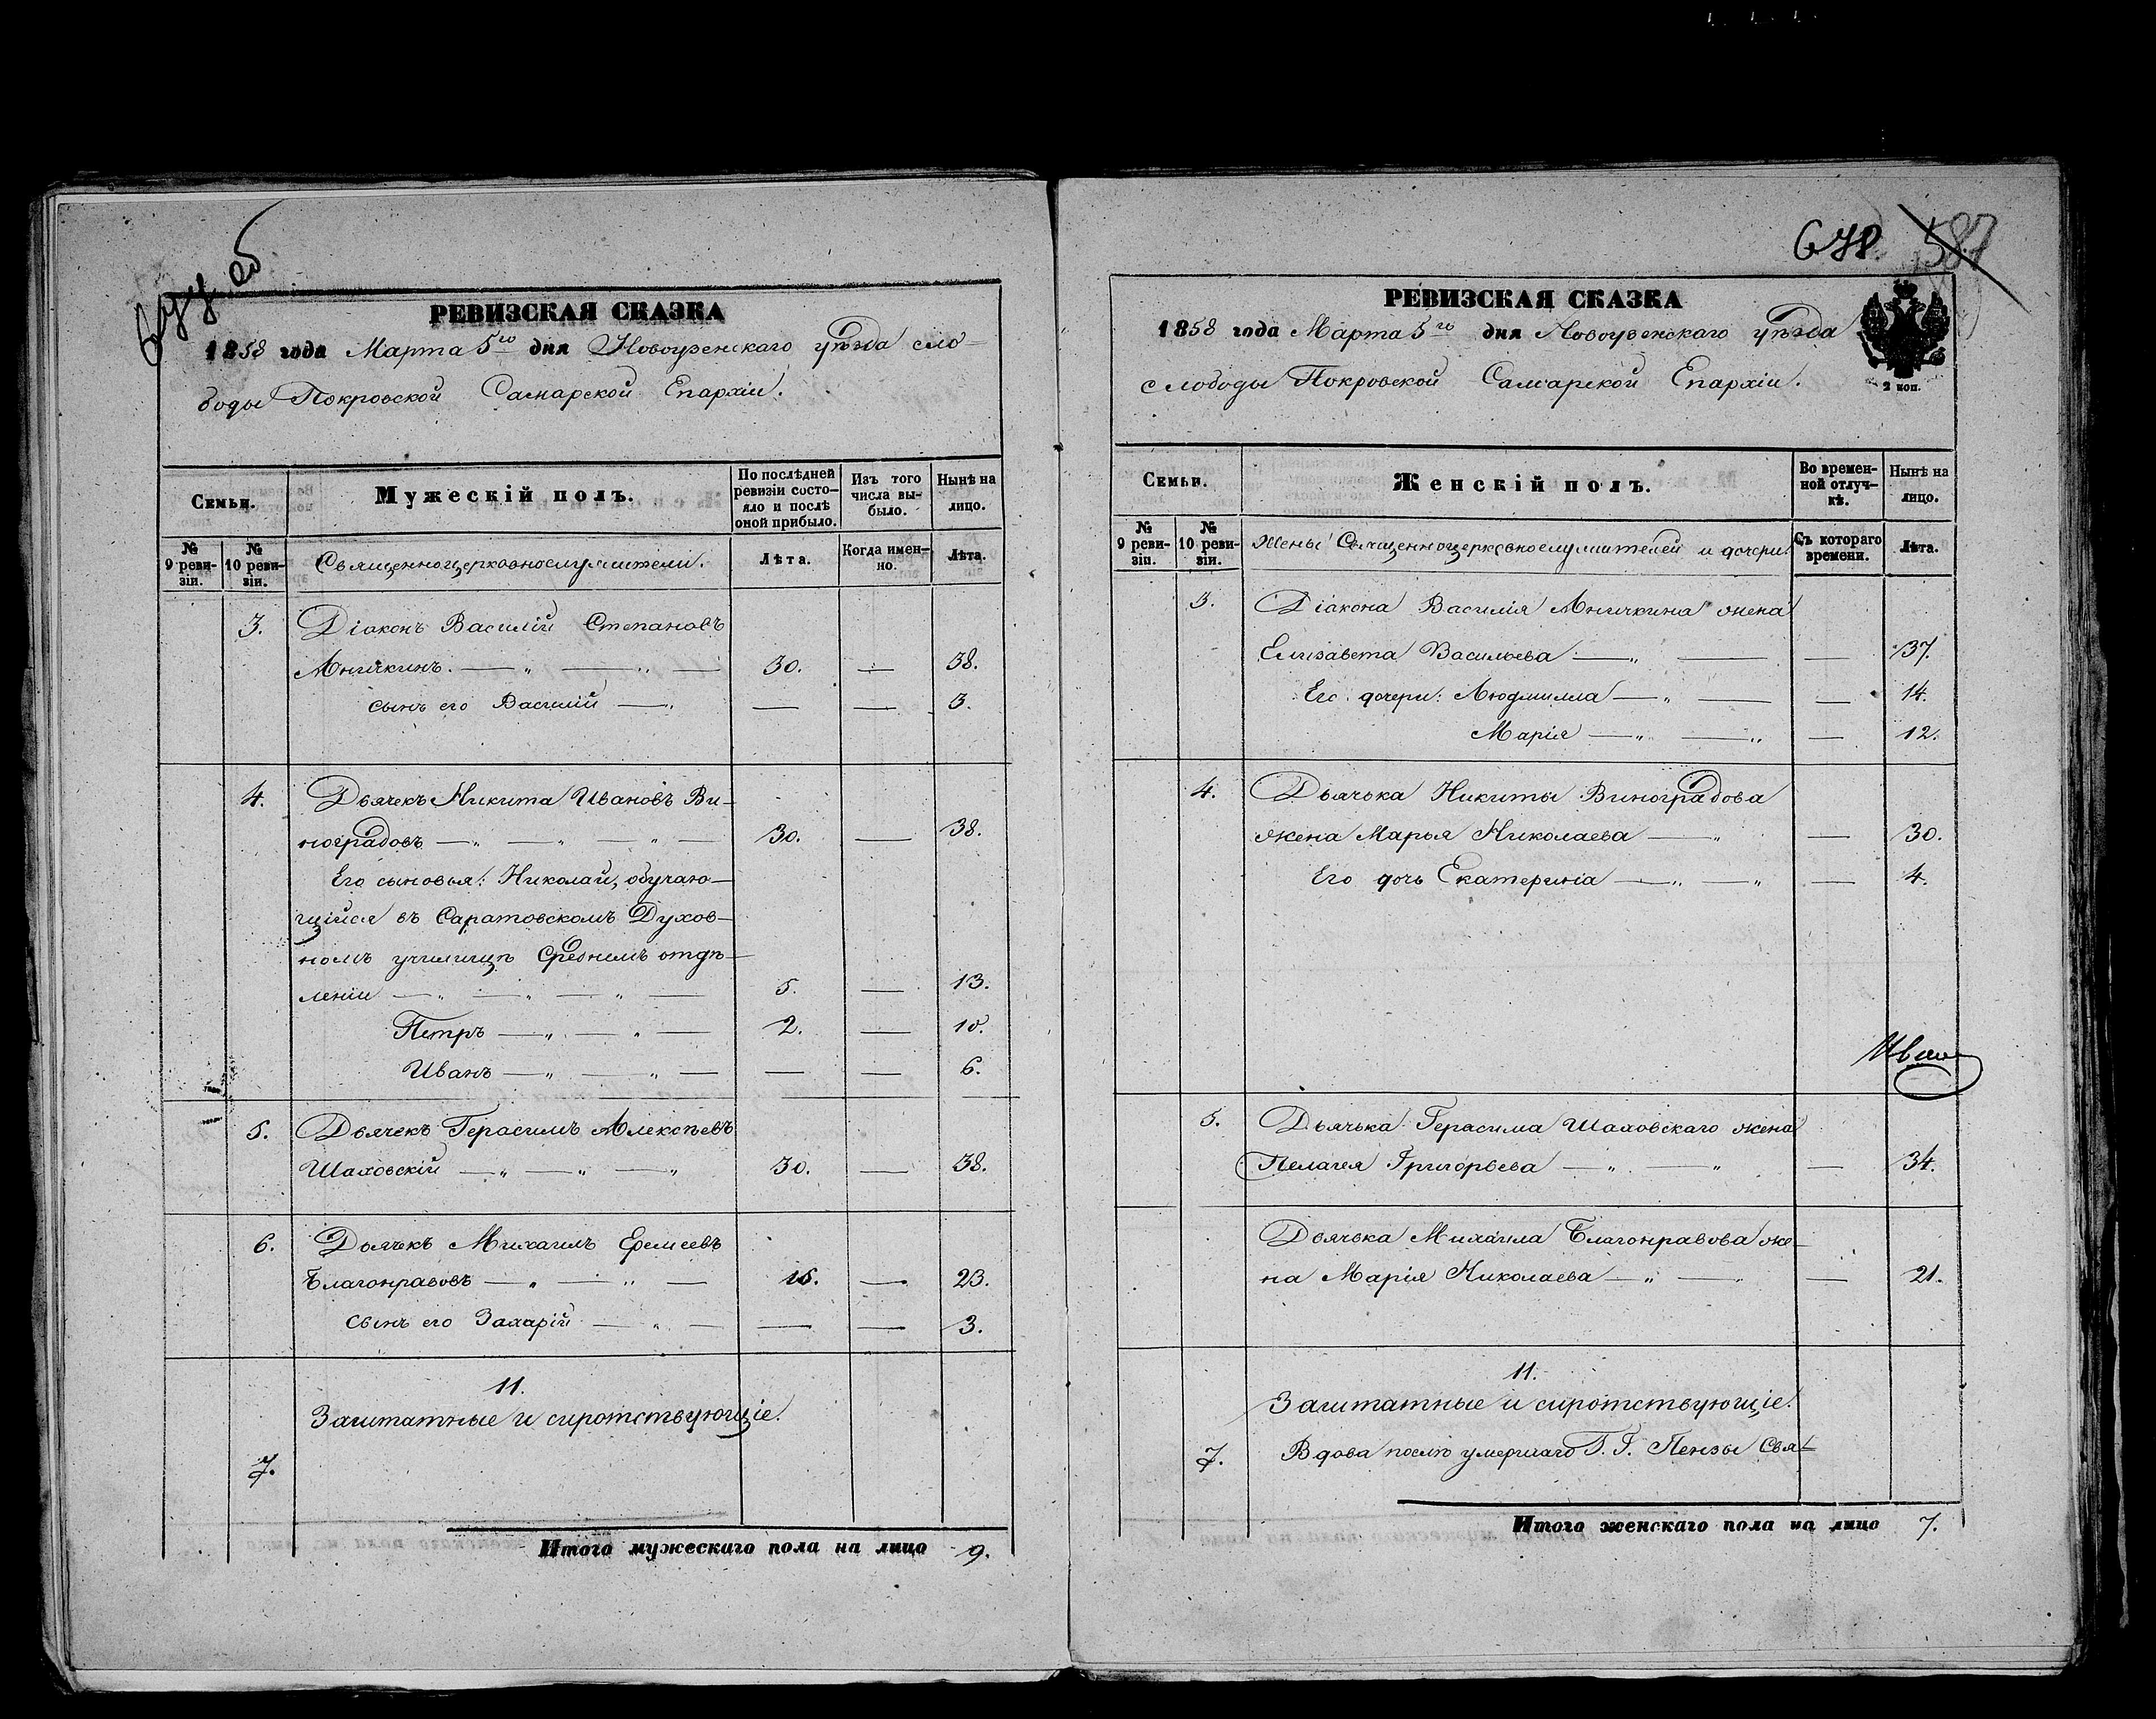 677 об
РЕВИЗСКАЯ СКАЗКА
1858 года Марта 5го дня Новоузенскаго уѣзда сло-
боды Покровской Самарской Епархіи.
Семьи.
Мужескій полъ.
По послѣдней ревизіи состо-
яло и послѣ оной прибыло.
Изъ того числа вы-
было.
Нынѣ на лицо.
№ 9 реви-
зіи.
№ 10 реви-
зіи.
Священноцерковнослужители.
Лѣта.
Когда имен-
но.
Лѣта.
3. Діаконъ Василій Степановъ
Аничкинъ. — „ — „ — 30. — 38.
сынъ его Василій — „ — — 3.
4. Дьячекъ Никита Ивановъ Ви-
ноградовъ — „ — „ — „ — 30. — 38.
Его сыновья: Николай, обучаю-
щійся въ Саратовскомъ Духов-
номъ училищѣ Среднемъ отдѣ-
леніи — „ — „ — „ — 5. — 13.
Петръ — „ — „ — 2. — 10.
Иванъ — „ — „ — — — 6.
5. Дьячекъ Герасимъ Алексѣевъ
Шаховскій — „ — „ — „ 30. — 38.
6. Дьячекъ Михаилъ Еремеевъ
Благонравовъ — „ — „ — 15. — 23.
сынъ его Захарій — „ — — — 3.
11.
Заштатные и сиротствующіе.
7.
Итого мужескаго пола на лицо 9.
678. 587
РЕВИЗСКАЯ СКАЗКА
1858 года Марта 5го дня Новоузенскаго уѣзда
слободы Покровской Самарской Епархіи.
2 коп.
Семьи.
Женскій полъ.
Во времен-
ной отлуч-
кѣ.
Нынѣ на лицо.
№ 9 реви-
зіи.
№ 10 реви-
зіи.
Жены Священноцерковнослужителей и дочери.
Съ котораго времени.
Лѣта.
3. Діакона Василія Аничкина жена
Елизавета Васильева — „ — — 37.
Его дочери: Людмилла — „ — — 14.
Марія — „ — „ — 12.
4. Дьячька Никиты Виноградова
жена Марья Николаева — „ — 30.
Его дочь Екатерина — „ — „ — 4.
Иван
5. Дьячька Герасима Шаховскаго жена
Пелагея Григорьева — „ — „ — 34.
Дьячька Михаила Благонравова же-
на Марія Николаева — „ — „ — 21.
11.
Заштатные и сиротствующіе.
7. Вдова послѣ умершаго Г. Г. Пензы Свя-
Итого женскаго пола на лицо 7.